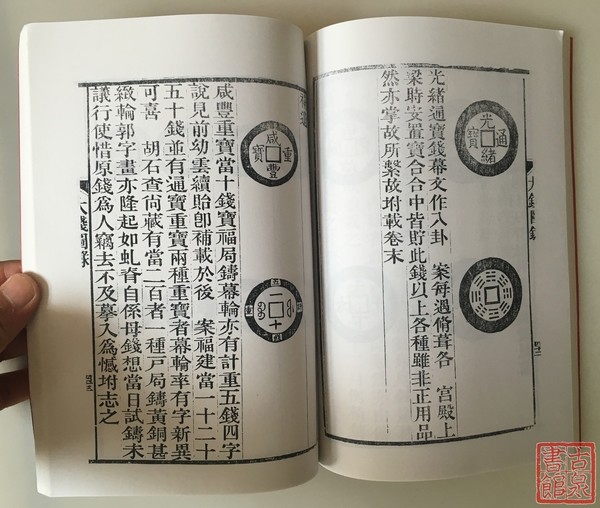 光緒通寶
光緒通寶錢幕文作八卦　案每遇脩葺各　宮殿上
梁時安置寶合合中皆貯此錢以上各種雖非正用品
然亦掌故所繫故坿載卷末
大錢圖錄
四二
咸豐重寶
一十
咸豐重寶當十錢寶福局鑄幕輪亦有計重五錢四字
說見前幼雲續貽卽補載於後　案福建當一十二十
五十錢並有通寶重寶兩種重寶者幕輪率有字新異
可喜　胡石查尚藏有當二百者一種戸局鑄黃銅甚
緻輪郭字畫亦隆起如虬脊自係母錢想當日試鑄未
議行使惜原錢爲人竊去不及摹入爲憾坿志之
大錢圖錄
四三
古泉書館